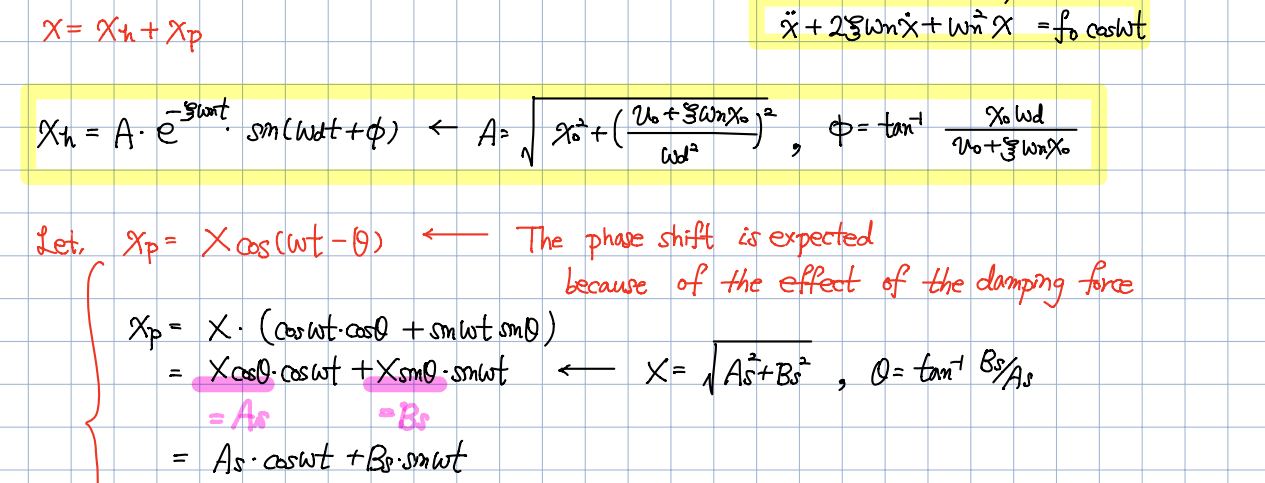 x = xh + xp
ẍ + 2ξωnẋ + ωn²x = f₀ cosωt
xh = A · e^(-ξωnt) · sin(ωdt + φ) ← A = √(x₀² + ((v₀ + ξωnx₀)/ωd²)²) , φ = tan⁻¹ (x₀ωd)/(v₀ + ξωnx₀)
Let, xp = X cos(ωt - θ) ← The phase shift is expected
because of the effect of the damping force
xp = X · (cosωt·cosθ + sinωt sinθ)
= Xcosθ·cosωt + Xsinθ·sinωt ← X = √(As² + Bs²) , θ = tan⁻¹ Bs/As
= As = Bs
= As · cosωt + Bs · sinωt